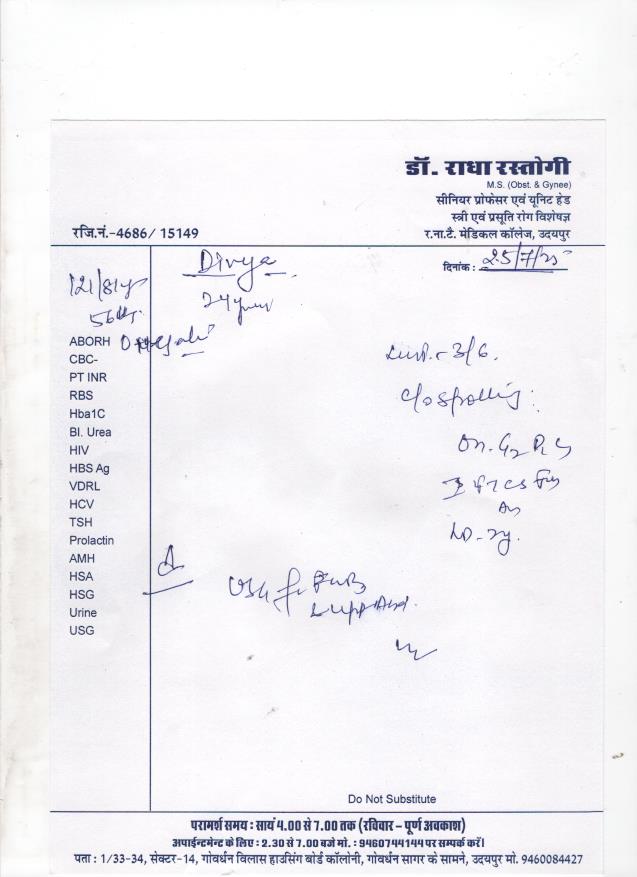 डॉ. राधा रस्तोगी
M.S. (Obst. & Gynee)
सीनियर प्रोफेसर एवं यूनिट हेड
स्त्री एवं प्रसूति रोग विशेषज्ञ
र.ना.टै. मेडिकल कॉलेज, उदयपुर
रजि.नं.-4686/ 15149
दिनांक : 25/7/25
Divya
24 year
121/81
56 kg.
ABORH
CBC-
PT INR
RBS
Hba1C
Bl. Urea
HIV
HBS Ag
VDRL
HCV
TSH
Prolactin
AMH
HSA
HSG
Urine
USG
3/6.
c/o spotting
USG
Do Not Substitute
परामर्श समय : सायं 4.00 से 7.00 तक (रविवार – पूर्ण अवकाश)
अपाईन्टमेन्ट के लिए : 2.30 से 7.00 बजे मो. : 9460744144 पर सम्पर्क करें।
पता : 1/33-34, सेक्टर-14, गोवर्धन विलास हाउसिंग बोर्ड कॉलोनी, गोवर्धन सागर के सामने, उदयपुर मो. 9460084427